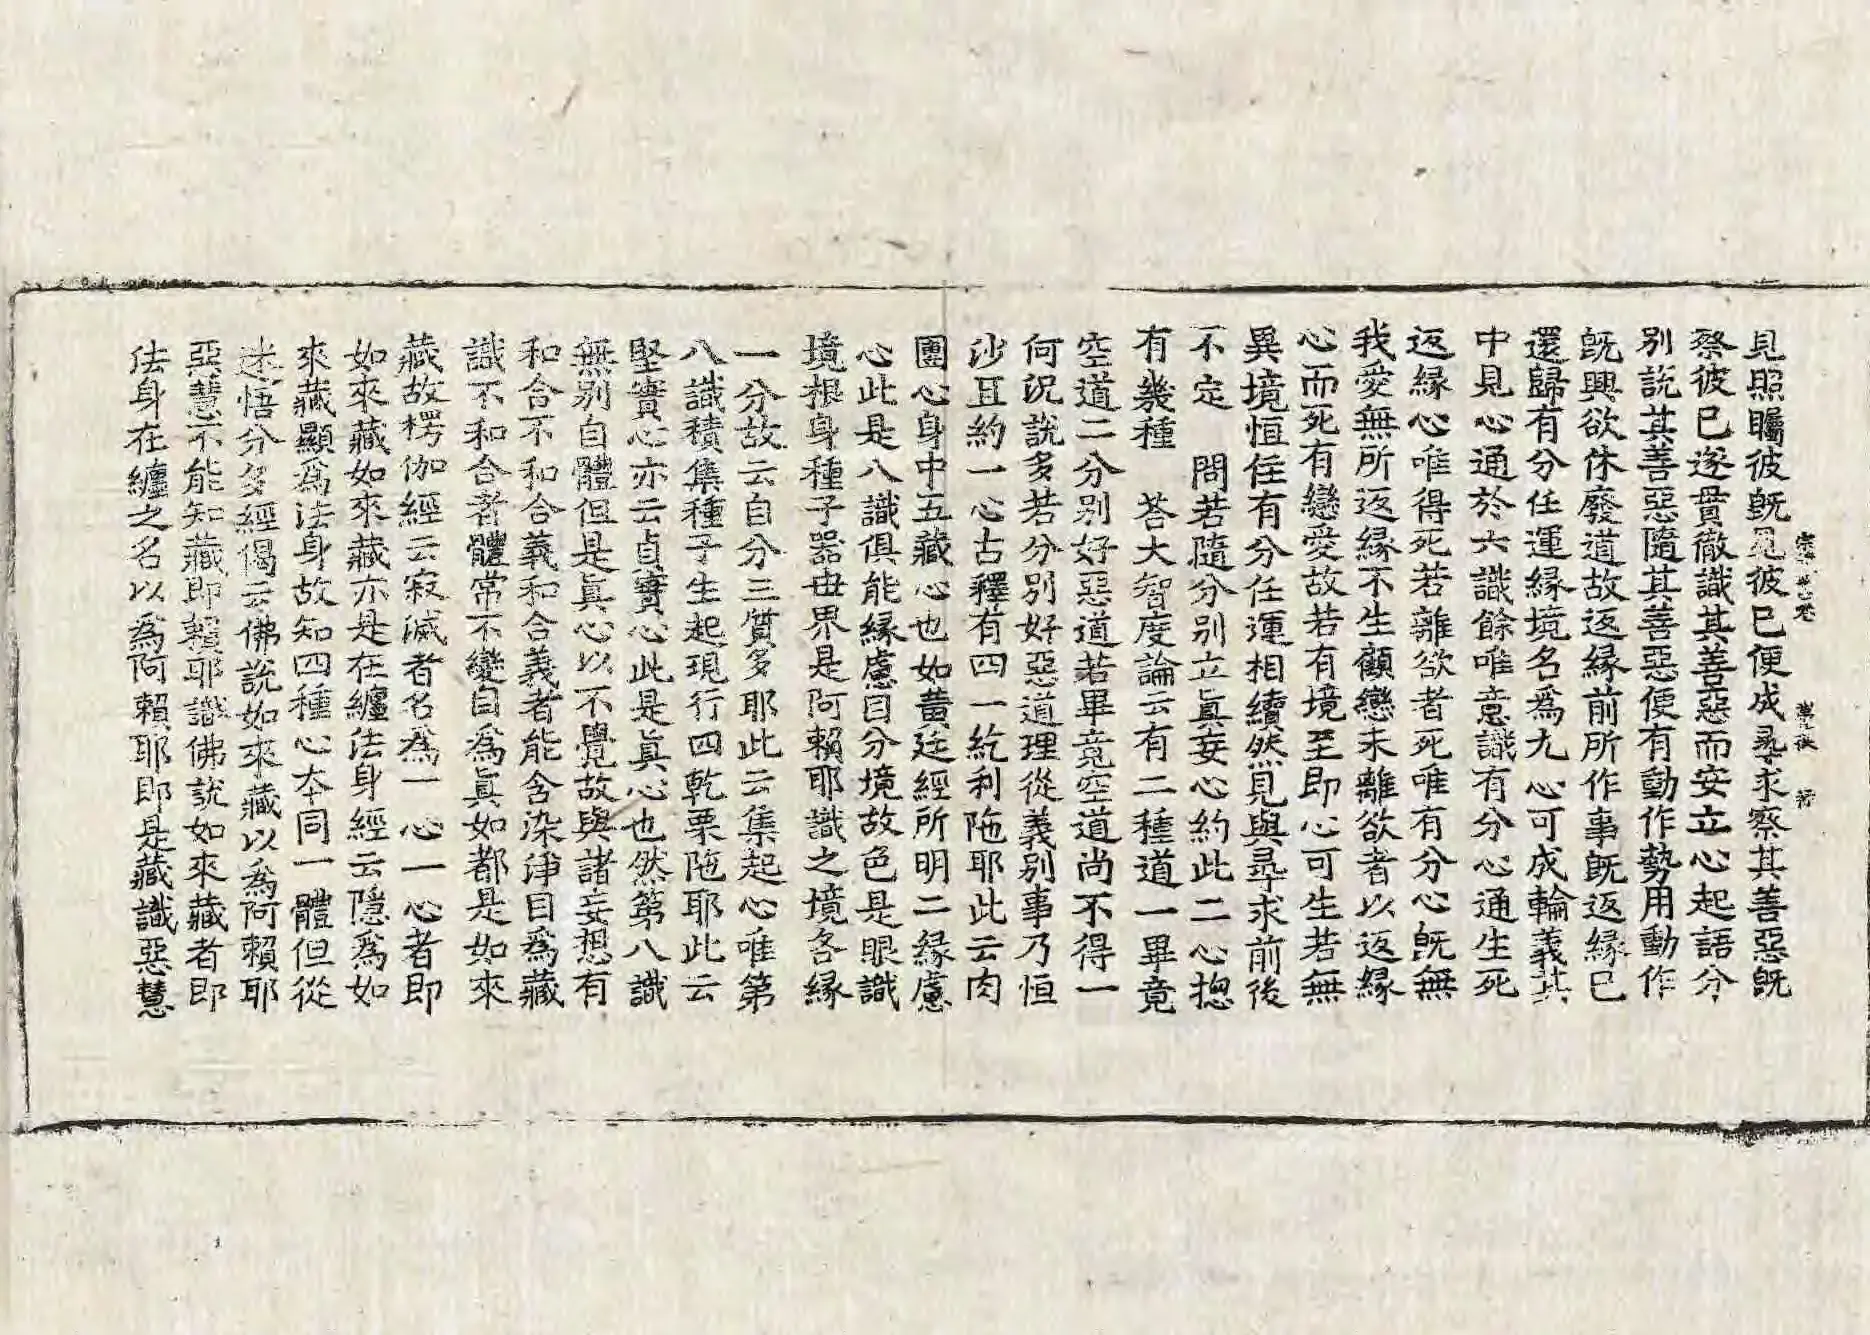 見照矚彼旣見彼已便成尋求察其善惡旣
察彼已遂貫徹識其善惡而安立心起語分
別說其善惡隨其善惡便有動作勢用動作
旣興欲休廢道故返緣前所作事旣返緣已
還歸有分任運緣境名爲九心可成輪義其
中見心通於六識餘唯意識有分心通生死
返緣心唯得死若離欲者死唯有分心旣無
我愛無所返緣不生顧戀未離欲者以返緣
心而死有戀愛故若有境至即心可生若無
異境恒住有分任運相續然見與尋求前後
不定　問若隨分別立眞妄心約此二心揔
有幾種　荅大智度論云有二種道一畢竟
空道二分別好惡道若畢竟空道尚不得一
何況說多若分別好惡道理從義別事乃恒
沙且約一心古釋有四一紇利陁耶此云肉
團心身中五藏心也如黃廷經所明二緣慮
心此是八識俱能緣慮自分境故色是眼識
境根身種子器世界是阿賴耶識之境各緣
一分故云自分三質多耶此云集起心唯第
八識積集種子生起現行四乾栗陁耶此云
堅實心亦云貞實心此是眞心也然第八識
無別自體但是眞心以不覺故與諸妄想有
和合不和合義和合義者能含染淨目爲藏
識不和合者體常不變目爲眞如都是如來
藏故楞伽經云寂滅者名爲一心一心者即
如來藏如來藏亦是在纏法身經云隱爲如
來藏顯爲法身故知四種心本同一體但從
迷悟分多經偈云佛說如來藏以爲阿賴耶
惡慧不能知藏即賴耶識佛說如來藏者即
法身在纏之名以爲阿賴耶即是藏識惡慧